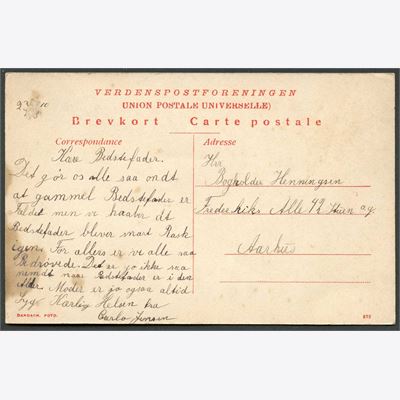 VERDENSPOSTFORENINGEN
(UNION POSTALE UNIVERSELLE)
Brevkort Carte postale
Correspondance
Kære Bedstefader.
Det gør os alle saa ondt
at gammel Bedstefader er
men vi haaber dt
Bedstefader bliver snart Rask
igen. For allers er vi alle saa
Bedrøvede. Det er jo ikke saa
nemt naar Bedstefader er i den
Alder. Moder er jo ogsaa altid
Syg. Kærlig Helsen fra
Carlo Jensen
Adresse
Hrr
Bogholder Henningsen
Frederiks Alle 42
Aarhus
DANSACH. FOTO.